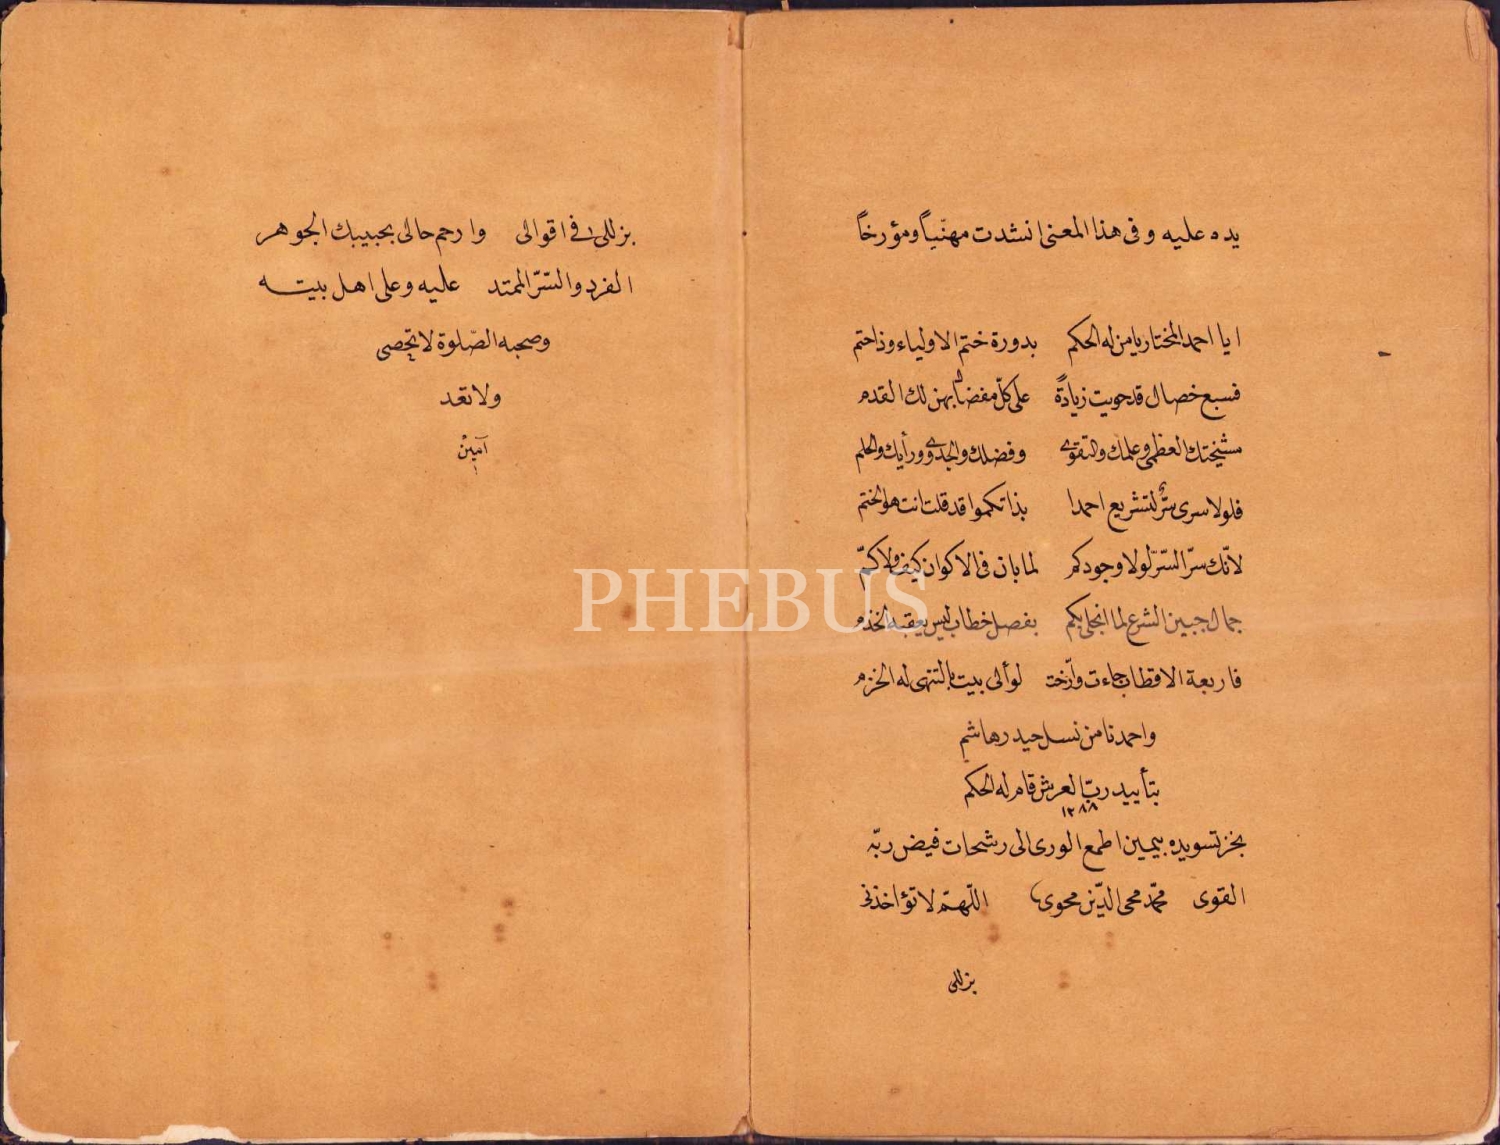 يده عليه وفى هذا المعنى انشدت مهنّياً ومؤرخاً
ايا احمد المختار يا من له الحكم بدورة ختم الاولياء وذا حتم
فسبع خصال قد حويت زيادةً على كلّ مفضال بهن لك القدم
مشيختك العظمى وعلمك والتقوى وفضلك والجدوى ورأيك والحلم
فلولا سرى سرٌّ لتشريع احمدا بذاتكموا قد قلت انت هو الختم
لانّك سرّ السّرّ لولا وجودكم لما بان فى الاكوان كيف ولا كمّ
جمال جبين الشرع لما انجلى بكم بفصل خطاب ليس يعقبه الخذم
فاربعة الاقطاب جاءت وارّخت لوألى بيت بالتنهى له الخزم
واحمدنا من نسل حيدر هاشم
بتأييد ربّ العرش قام له الحكم
١٢٨٨
نجز تسويده بيمين اطمع الورى الى رشحات فيض ربّه
القوى محمّد محى الدّين محوى اللّهمّ لا تؤاخذنى
بزللى
بزللى فى اقوالى وارحم حالى بحبيبك الجوهر
الفرد والسّرّ الممتد عليه وعلى اهل بيته
وصحبه الصّلوة لا تحصى
ولا تعد
آمين
PHEBUS